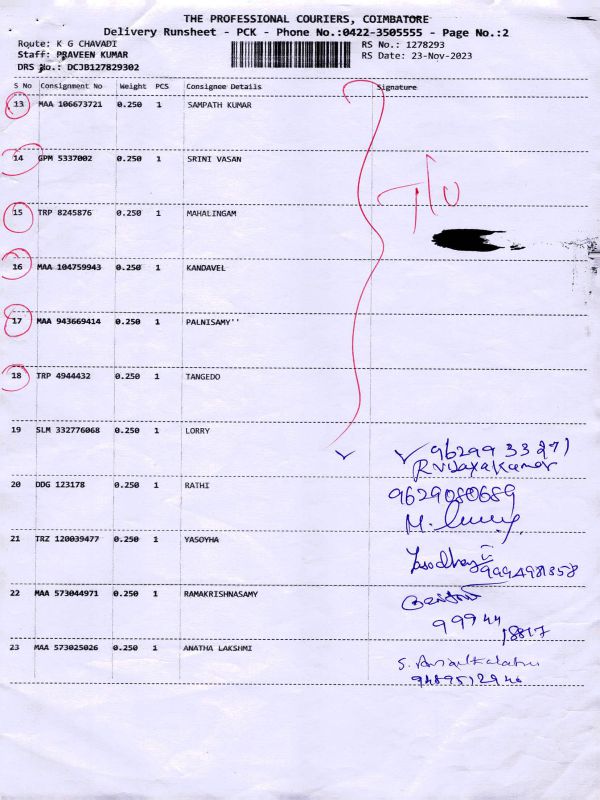 THE PROFESSIONAL COURIERS, COIMBATORE
Delivery Runsheet - PCK - Phone No.:0422-3505555 - Page No.:2
Route: K G CHAVADI
RS No.: 1278293
Staff: PRAVEEN KUMAR
RS Date: 23-Nov-2023
DRS No.: DCJB127829302
S No Consignment No Weight PCS Consignee Details Signature
13 MAA 106673721 0.250 1 SAMPATH KUMAR
14 GPM 5337002 0.250 1 SRINI VASAN
15 TRP 8245876 0.250 1 MAHALINGAM
16 MAA 104759943 0.250 1 KANDAVEL
17 MAA 943669414 0.250 1 PALNISAMY''
18 TRP 4944432 0.250 1 TANGEDO
19 SLM 332776068 0.250 1 LORRY
96299 33271
R Vijayakumar
20 DDG 123178 0.250 1 RATHI
9629080689
21 TRZ 120039477 0.250 1 YASOYHA
9994981358
22 MAA 573044971 0.250 1 RAMAKRISHNASAMY
99944
18817
23 MAA 573025026 0.250 1 ANATHA LAKSHMI
9489512946